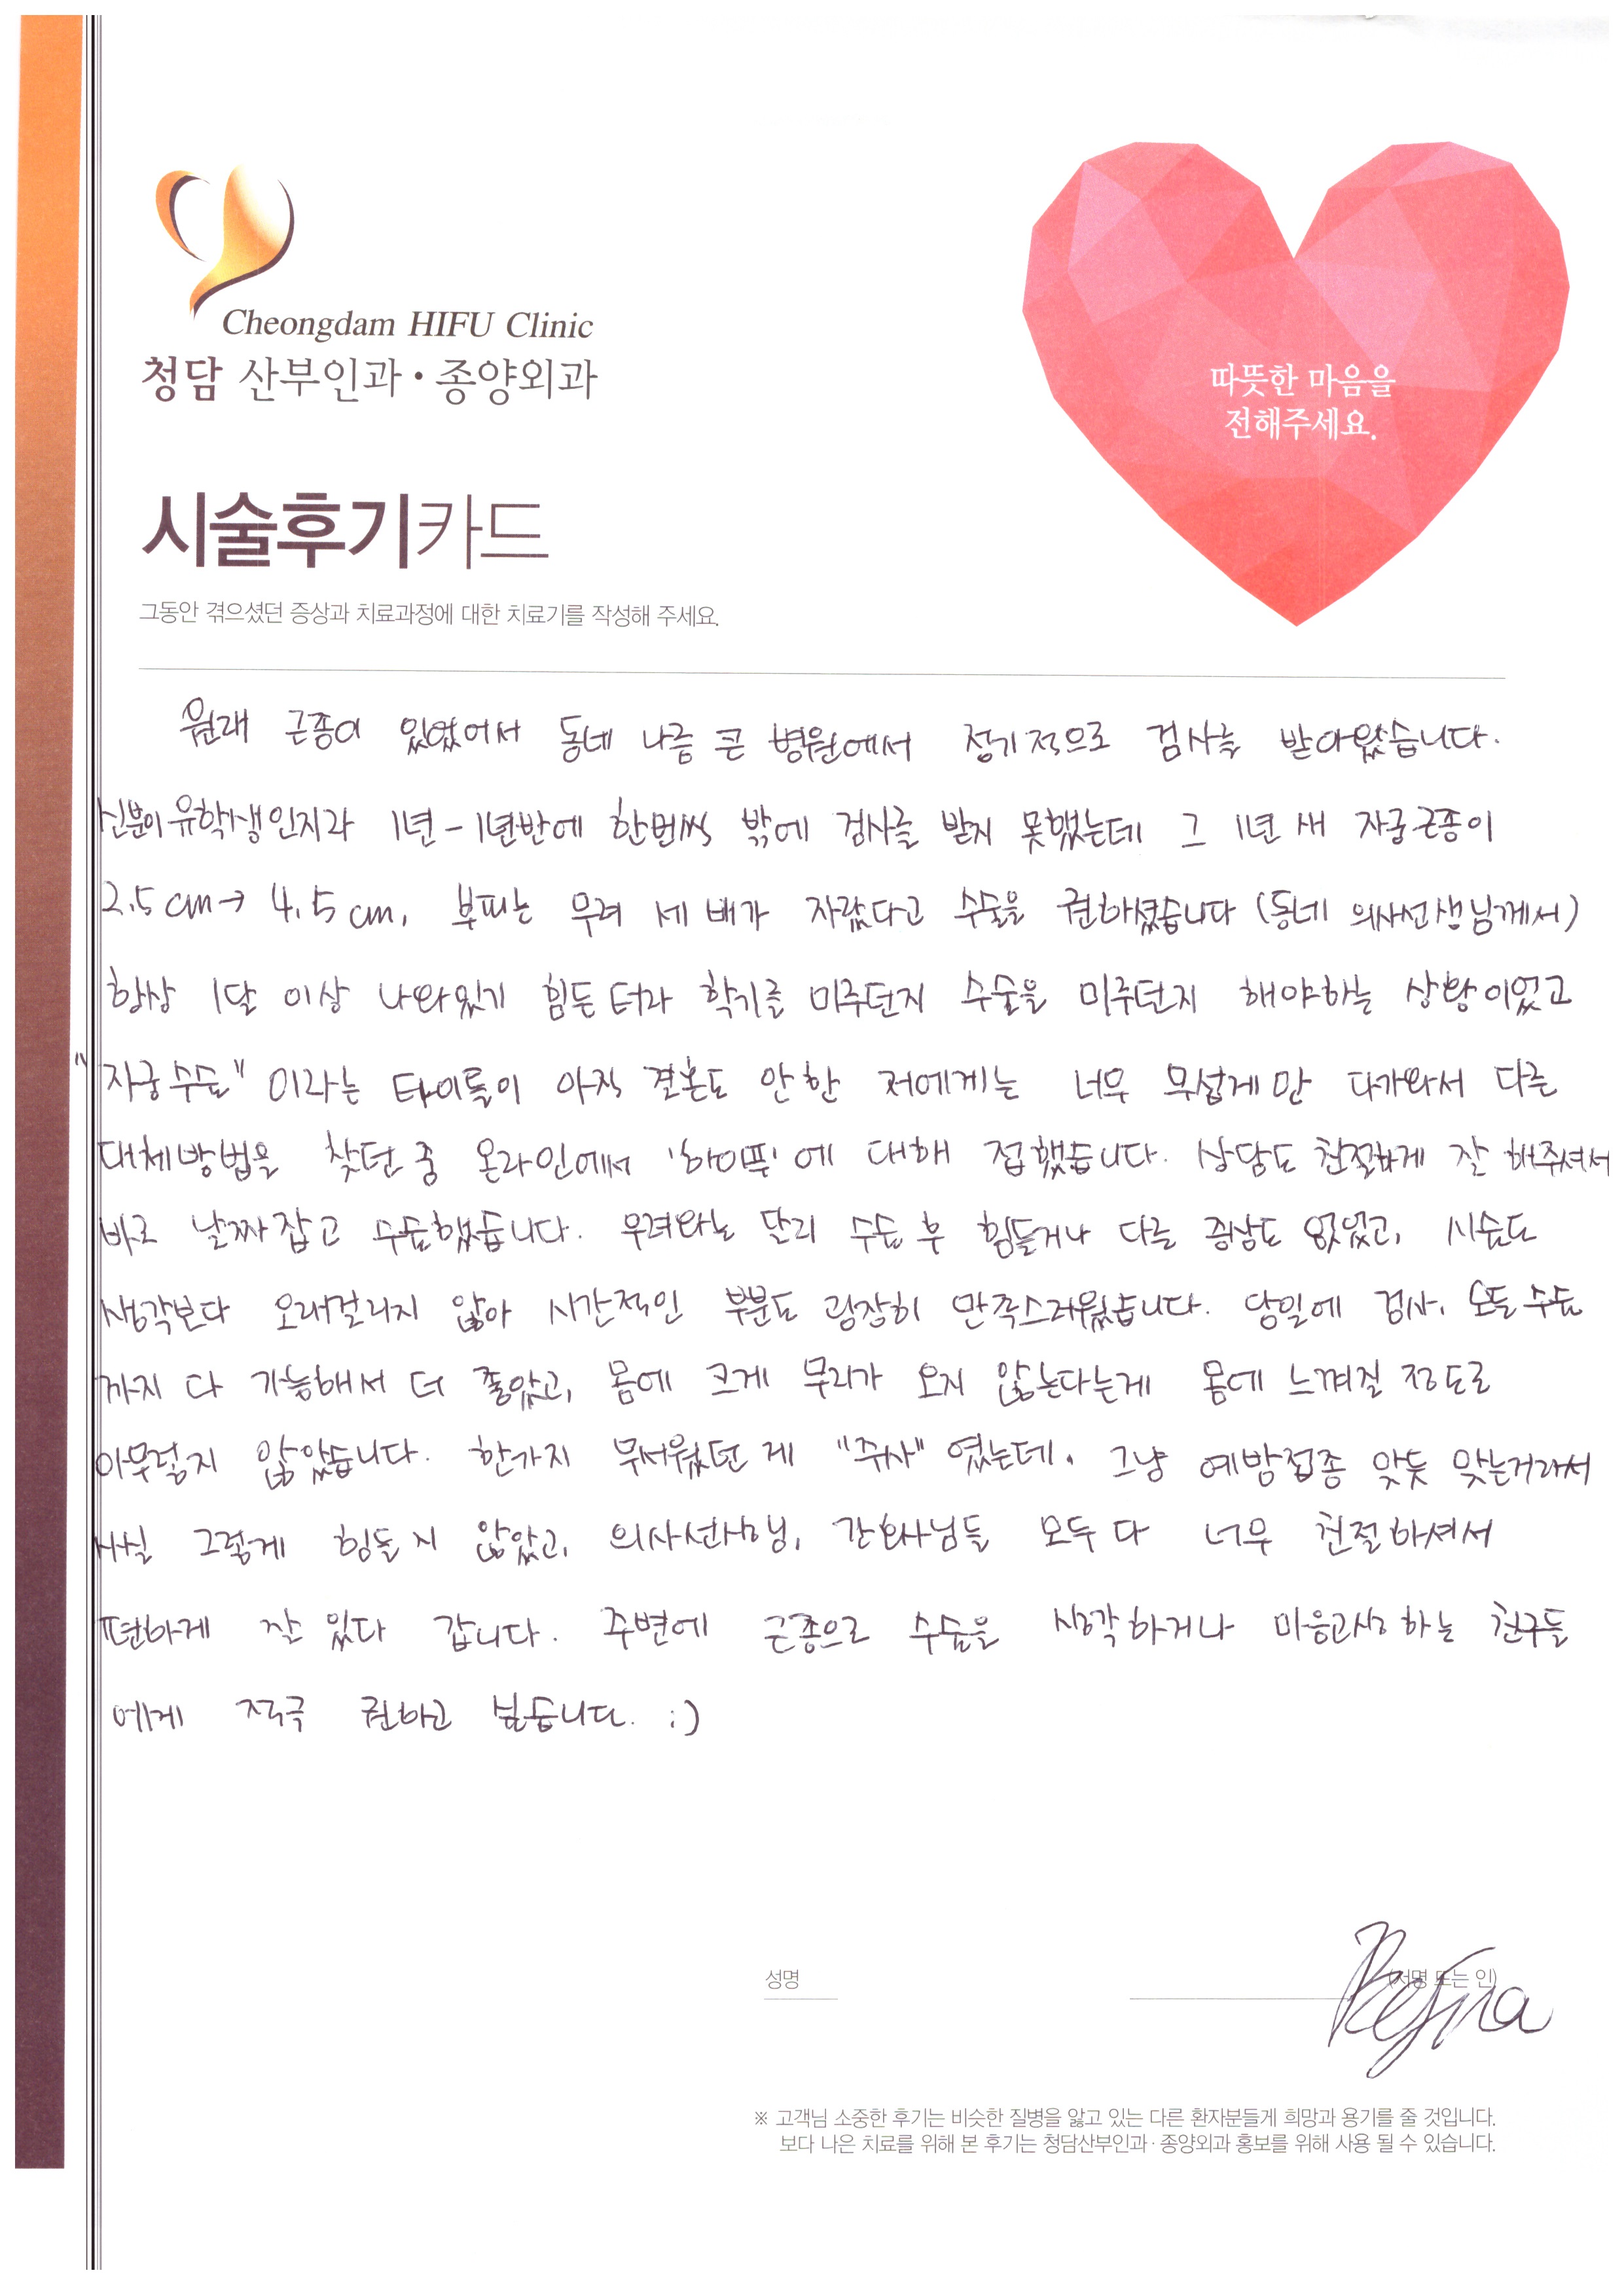 Cheongdam HIFU Clinic
청담 산부인과·종양외과
따뜻한 마음을
전해주세요.
시술후기카드
그동안 겪으셨던 증상과 치료과정에 대한 치료기를 작성해 주세요.
원래 근종이 있었어서 동네 나름 큰 병원에서 정기적으로 검사를 받아왔습니다.
신분이 유학생인지라 1년-1년반에 한번씩 밖에 검사를 받지 못했는데 그 1년 새 자궁근종이
2.5cm→ 4.5cm, 부피는 무려 세 배가 자랐다고 수술을 권하셨습니다 (동네 의사선생님께서)
항상 1달 이상 나와있기 힘든 터라 학기를 미루던지 수술을 미루던지 해야하는 상황이었고
"자궁수술" 이라는 타이틀이 아직 결혼도 안한 저에게는 너무 무섭게만 다가와서 다른
대체방법을 찾던 중 온라인에서 '하이푸'에 대해 접했습니다. 상담도 친절하게 잘 해주셔서
바로 날짜잡고 수술했습니다. 우려와는 달리 수술 후 힘들거나 다른 증상도 없었고, 시술도
생각보다 오래걸리지 않아 시간적인 부분도 굉장히 만족스러웠습니다. 당일에 검사, 모든 수술
까지 다 가능해서 더 좋았고, 몸에 크게 무리가 오지 않는다는게 몸에 느껴질 정도로
아무렇지 않았습니다. 한가지 무서웠던 게 "주사" 였는데, 그냥 예방접종 맞듯 맞는거라서
사실 그렇게 힘들지 않았고, 의사선생님, 간호사님들 모두 다 너무 친절하셔서
편하게 잘 있다 갑니다. 주변에 근종으로 수술을 생각하거나 마음고생 하는 친구들
에게 적극 권하고 싶습니다. :)
성명 (서명 또는 인)
Regina
※ 고객님 소중한 후기는 비슷한 질병을 앓고 있는 다른 환자분들게 희망과 용기를 줄 것입니다.
보다 나은 치료를 위해 본 후기는 청담산부인과·종양외과 홍보를 위해 사용 될 수 있습니다.